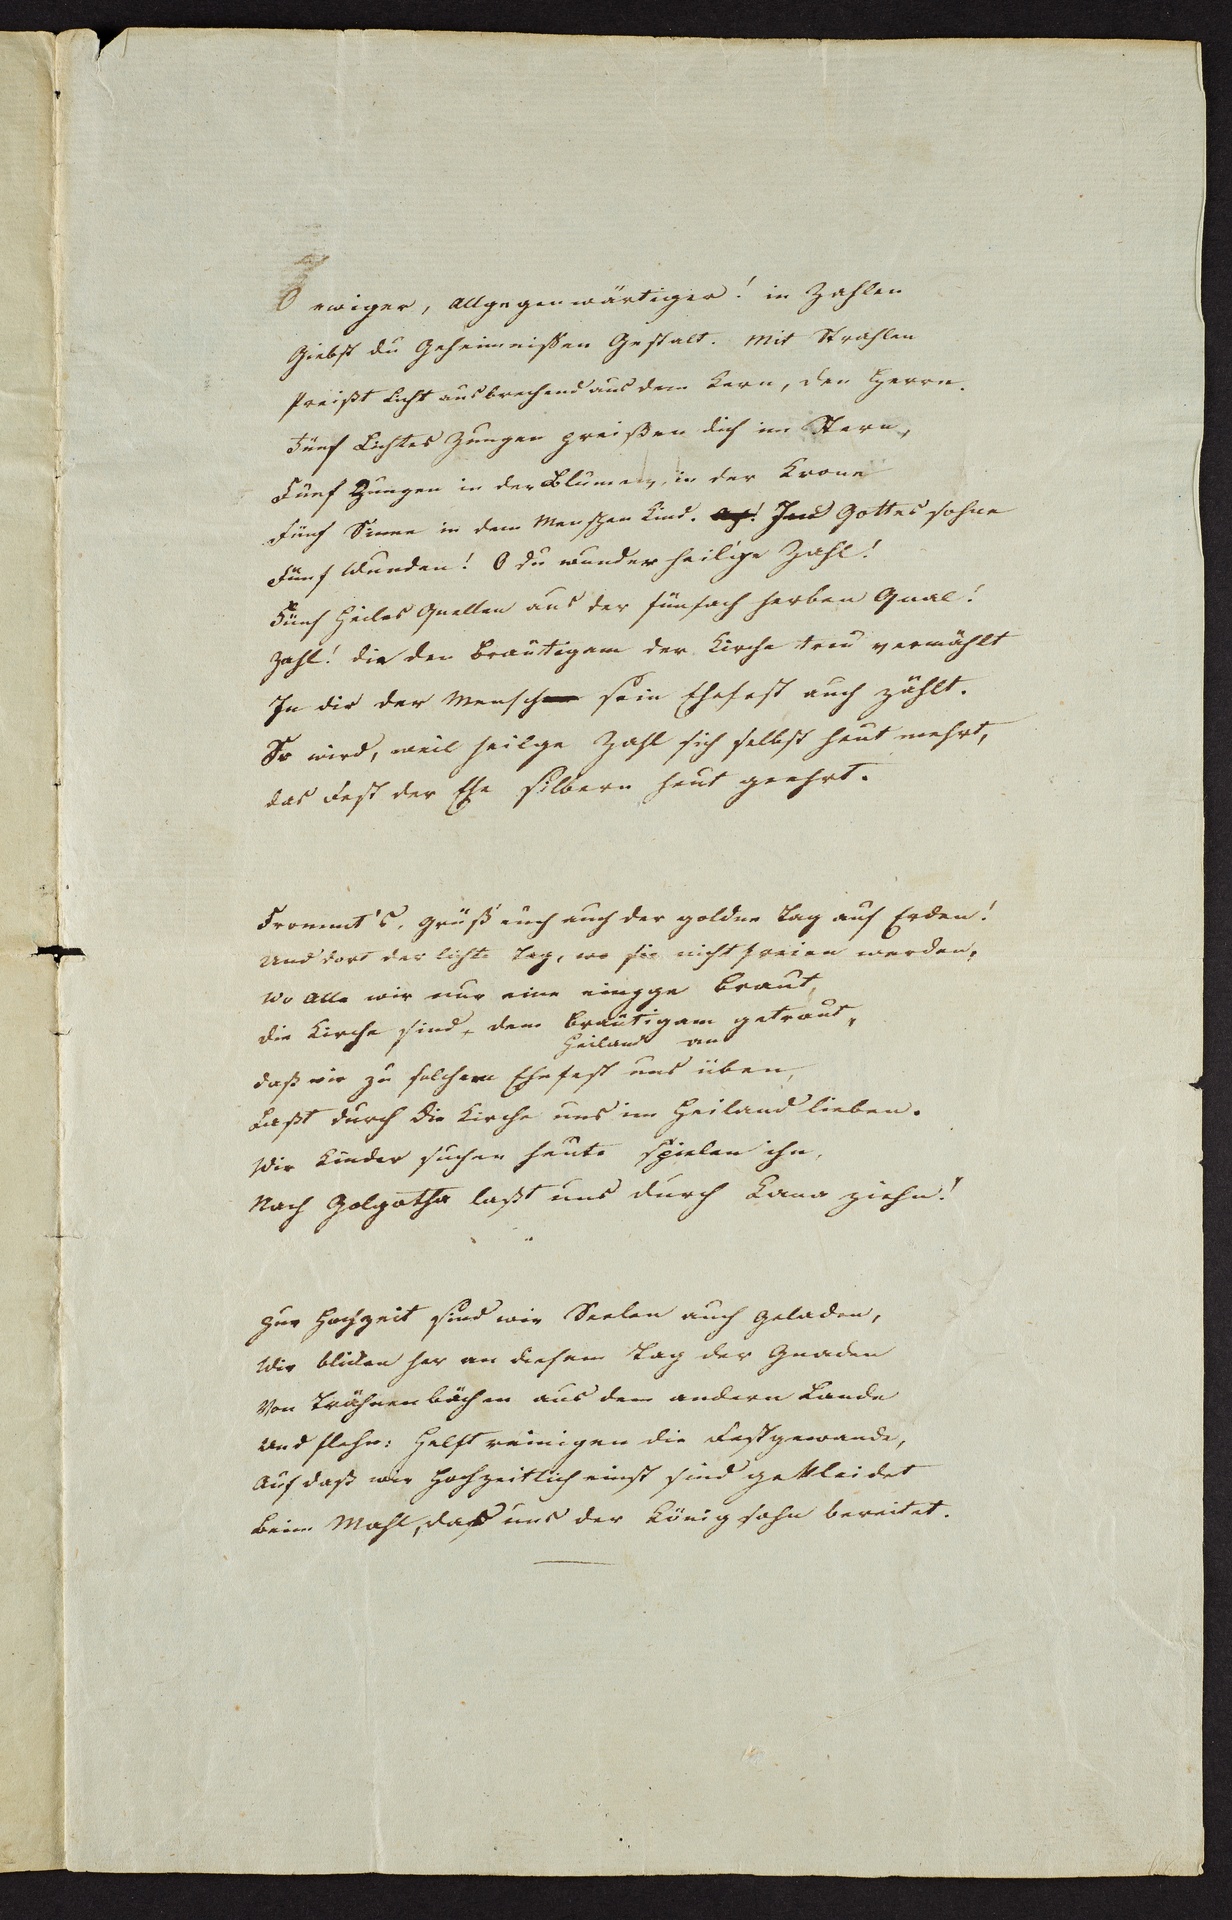 O ewiger, Allgegenwärtiger! in Zahlen
Giebst du Geheimnißen Gestalt. Mit Strahlen
Preißt Licht ausbrechend aus dem Kern, den Herrn.
Fünf Lichtes Zungen preißen dich im Stern,
Fünf Zungen in der Blumen, in der Krone
Fünf Sinne in dem Menschen Kind. Im Gottes sohne
Fünf Wunden! O du wunder heilige Zahl!
Fünf Heiles Quellen aus der fünfach herben Qual!
Zahl! die den Bräutigam der Kirche treu vermählt
In dir der Mensch sein Ehefest auch zählt.
So wird, weil heilge Zahl sich selbst heut mehrt,
das Fest der Ehe silbern heut geehrt.
Frommt's, grüß euch auch der goldne Tag auf Erden!
Und dort der lichte Tag, wo sie nicht freien werden,
Wo Alle wir nur eine einzge Braut,
die Kirche sind, dem Bräutigam getraut,
Heiland an
daß wir zu solchem Ehefest uns üben,
Laßt durch die Kirche uns im Heiland lieben.
Wir Kinder suchen heute spielen ihn,
Nach Golgatha laßt uns durch Kana ziehn!
Zur Hochzeit sind wir Seelen auch geladen,
Wir blicken her an diesem Tag der Gnaden
Von Trähnenbächen aus dem andern Lande
Und flehn: Helft reinigen die Festgewande,
Auf daß wir hochzeitlich einst sind gekleidet
Beim Mahl, das uns der Königsohn bereitet.